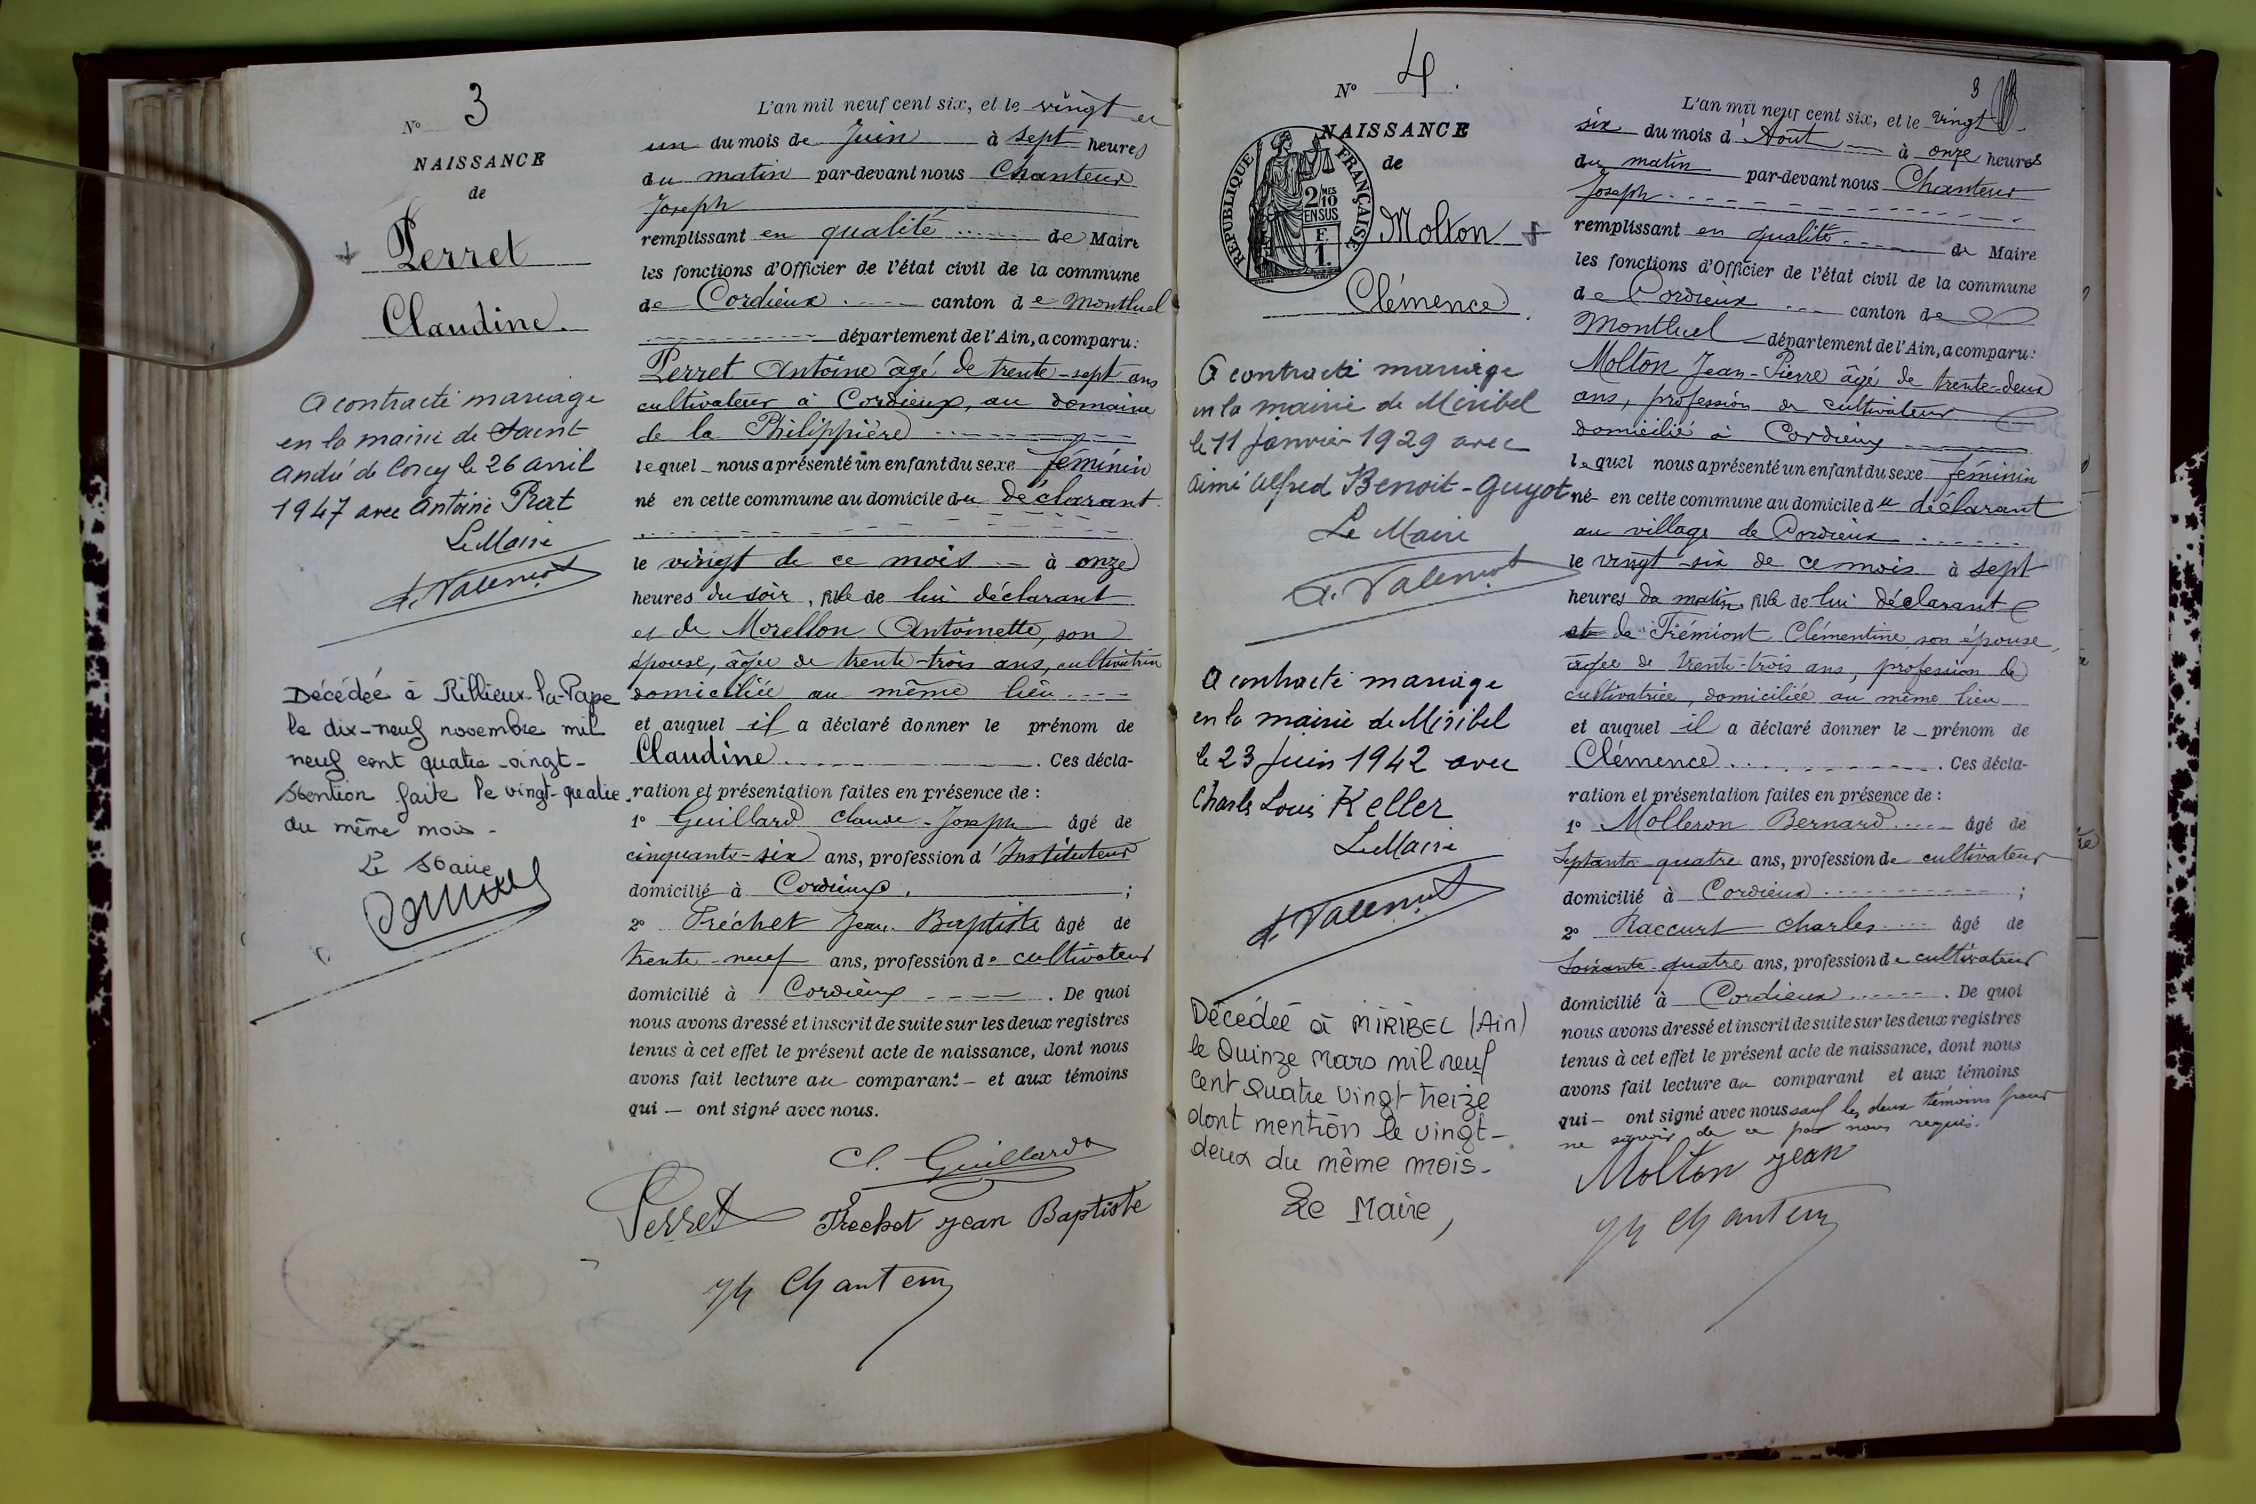 Nº 3
NAISSANCE
de
Perret
Claudine.
A contracté mariage
en la mairie de Saint
André de Corcy le 26 avril
1947 avec Antoine Prat
Le Maire
Décédée à Rillieux-la-Pape
le dix-neuf novembre mil
neuf cent quatre-vingt-
Mention faite le vingt-quatre
du même mois-
Le Maire
L'an mil neuf cent six, et le vingt et
un du mois de Juin à sept heures
du matin par-devant nous Chanteur
Joseph
remplissant en qualité de Maire
les fonctions d'Officier de l'état civil de la commune
de Cordieux canton de Montluel
département de l'Ain, a comparu:
Perret Antoine âgé de trente-sept ans
cultivateur à Cordieux, au domaine
de la Philippière
lequel nous a présenté un enfant du sexe féminin
né en cette commune au domicile du déclarant
le vingt de ce mois à onze
heures du soir, fille de lui déclarant
et de Morellon Antoinette, son
épouse, âgée de trente-trois ans, cultivatrice
domiciliée au même lieu
et auquel il a déclaré donner le prénom de
Claudine. Ces décla-
ration et présentation faites en présence de:
1º Guillard Claude-Joseph âgé de
cinquante-six ans, profession d'Instituteur
domicilié à Cordieux;
2º Fréchet Jean-Baptiste âgé de
trente-neuf ans, profession de cultivateur
domicilié à Cordieux. De quoi
nous avons dressé et inscrit de suite sur les deux registres
tenus à cet effet le présent acte de naissance, dont nous
avons fait lecture au comparant et aux témoins
qui ont signé avec nous.
Cl. Guillard
Perret Frechet Jean Baptiste
Jh Chanteur
Nº 4.
NAISSANCE
de
REPUBLIQUE FRANÇAISE
2/10 MES
EN SUS
F.
1.
Molton
Clémence.
A contracté mariage
en la mairie de Miribel
le 11 Janvier 1929 avec
Aimé Alfred Benoit-Guyot
Le Maire
A contracté mariage
en la mairie de Miribel
le 23 Juin 1942 avec
Charles Louis Keller
Le Maire
Décédée à MIRIBEL (Ain)
le Quinze Mars mil neuf
Cent Quatre Vingt treize
dont mention le vingt-
deux du même mois-
Le Maire,
3
L'an mil neuf cent six, et le vingt
six du mois d'Août à onze heures
du matin par-devant nous Chanteur
Joseph
remplissant en qualité de Maire
les fonctions d'Officier de l'état civil de la commune
de Cordieux canton de
Montluel département de l'Ain, a comparu:
Molton Jean-Pierre âgé de trente-deux
ans, profession de cultivateur
domicilié à Cordieux
lequel nous a présenté un enfant du sexe féminin
né en cette commune au domicile du déclarant
au village de Cordieux
le vingt-six de ce mois à sept
heures du matin, fille de lui déclarant
et de Trémiont Clémentine, son épouse,
âgée de trente-trois ans, profession de
cultivatrice, domiciliée au même lieu
et auquel il a déclaré donner le prénom de
Clémence. Ces décla-
ration et présentation faites en présence de:
1º Molleron Bernard âgé de
Septante-quatre ans, profession de cultivateur
domicilié à Cordieux;
2º Raccurt Charles âgé de
Soixante-quatre ans, profession de cultivateur
domicilié à Cordieux. De quoi
nous avons dressé et inscrit de suite sur les deux registres
tenus à cet effet le présent acte de naissance, dont nous
avons fait lecture au comparant et aux témoins
qui ont signé avec nous sauf les deux témoins pour
ne savoir de ce par nous requis.
Molton Jean
Jh Chanteur